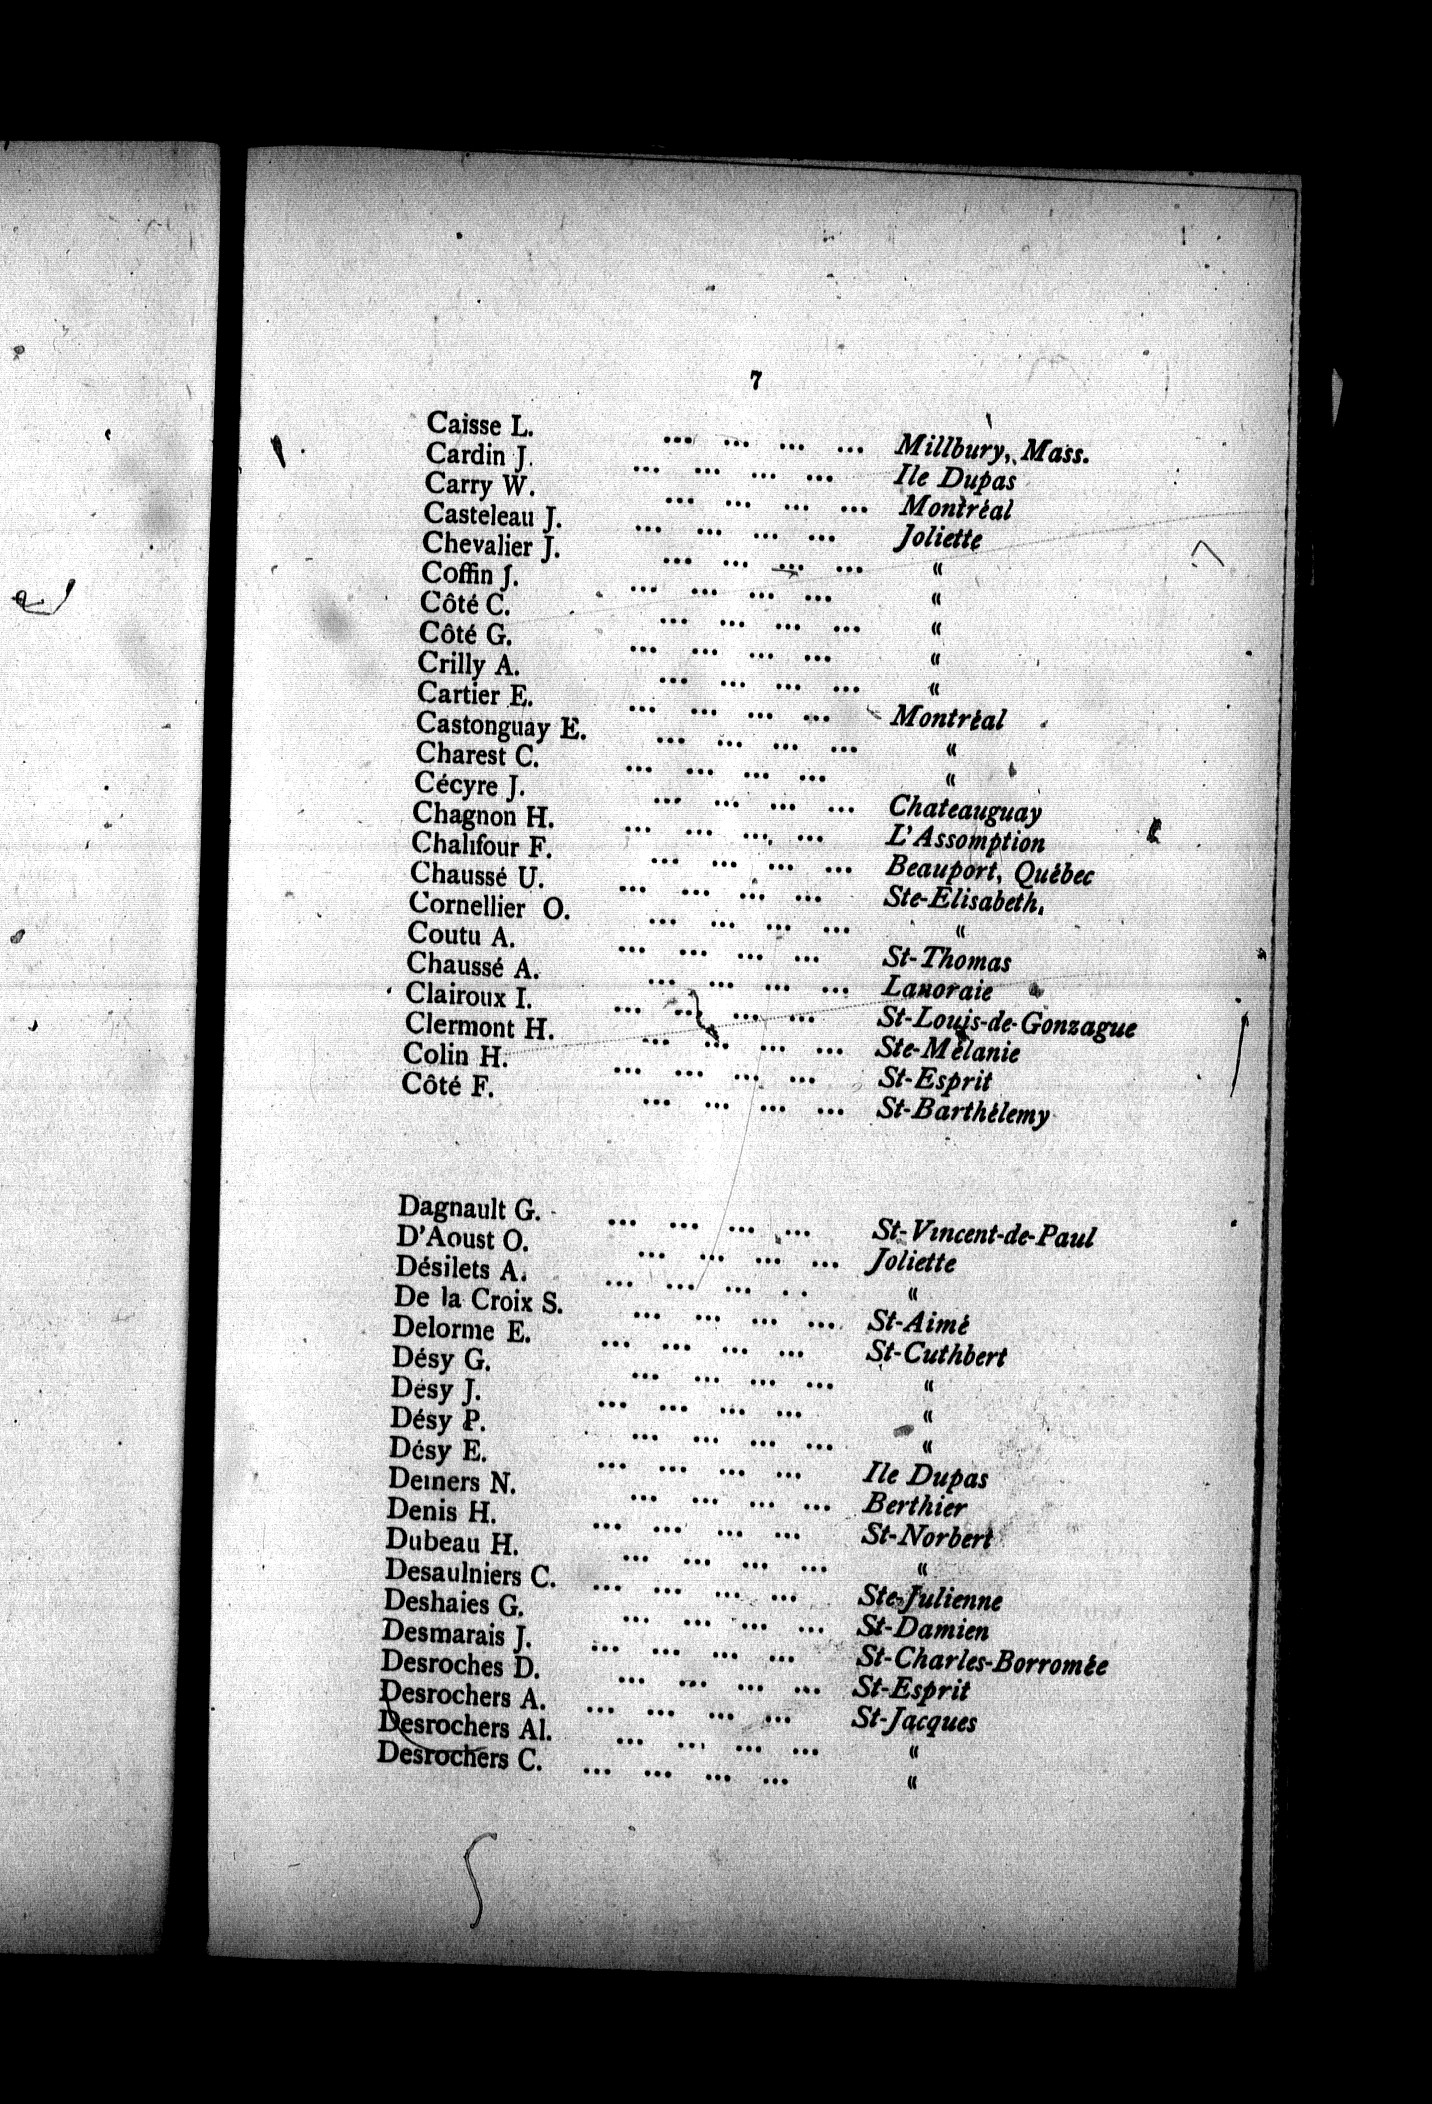 7
Caisse L. ... ... ... ... Millbury, Mass.
Cardin J. ... ... ... ... Ile Dupas
Carry W. ... ... ... ... Montréal
Casteleau J. ... ... ... ... Joliette
Chevalier J. ... ... ... ... «
Coffin J. ... ... ... ... «
Côté C. ... ... ... ... «
Côté G. ... ... ... ... «
Crilly A. ... ... ... ... «
Cartier E. ... ... ... ... Montréal
Castonguay E. ... ... ... ... «
Charest C. ... ... ... ... «
Cécyre J. ... ... ... ... Chateauguay
Chagnon H. ... ... ... ... L'Assomption
Chalifour F. ... ... ... ... Beauport, Québec
Chaussé U. ... ... ... ... Ste-Elisabeth,
Cornellier O. ... ... ... ... «
Coutu A. ... ... ... ... St-Thomas
Chaussé A. ... ... ... ... Lanoraie
Clairoux I. ... ... ... ... St-Louis-de-Gonzague
Clermont H. ... ... ... ... Ste-Mélanie
Colin H. ... ... ... ... St-Esprit
Côté F. ... ... ... ... St-Barthélemy
Dagnault G. ... ... ... ... St-Vincent-de-Paul
D'Aoust O. ... ... ... ... Joliette
Désilets A. ... ... ... . . «
De la Croix S. ... ... ... ... St-Aimé
Delorme E. ... ... ... ... St-Cuthbert
Désy G. ... ... ... ... «
Désy J. ... ... ... ... «
Désy P. ... ... ... ... «
Désy E. ... ... ... ... Ile Dupas
Demers N. ... ... ... ... Berthier
Denis H. ... ... ... ... St-Norbert
Dubeau H. ... ... ... ... «
Desaulniers C. ... ... ... ... Ste-Julienne
Deshaies G. ... ... ... ... St-Damien
Desmarais J. ... ... ... ... St-Charles-Borromée
Desroches D. ... ... ... ... St-Esprit
Desrochers A. ... ... ... ... St-Jacques
Desrochers Al. ... ... ... ... «
Desrochers C. ... ... ... ... «